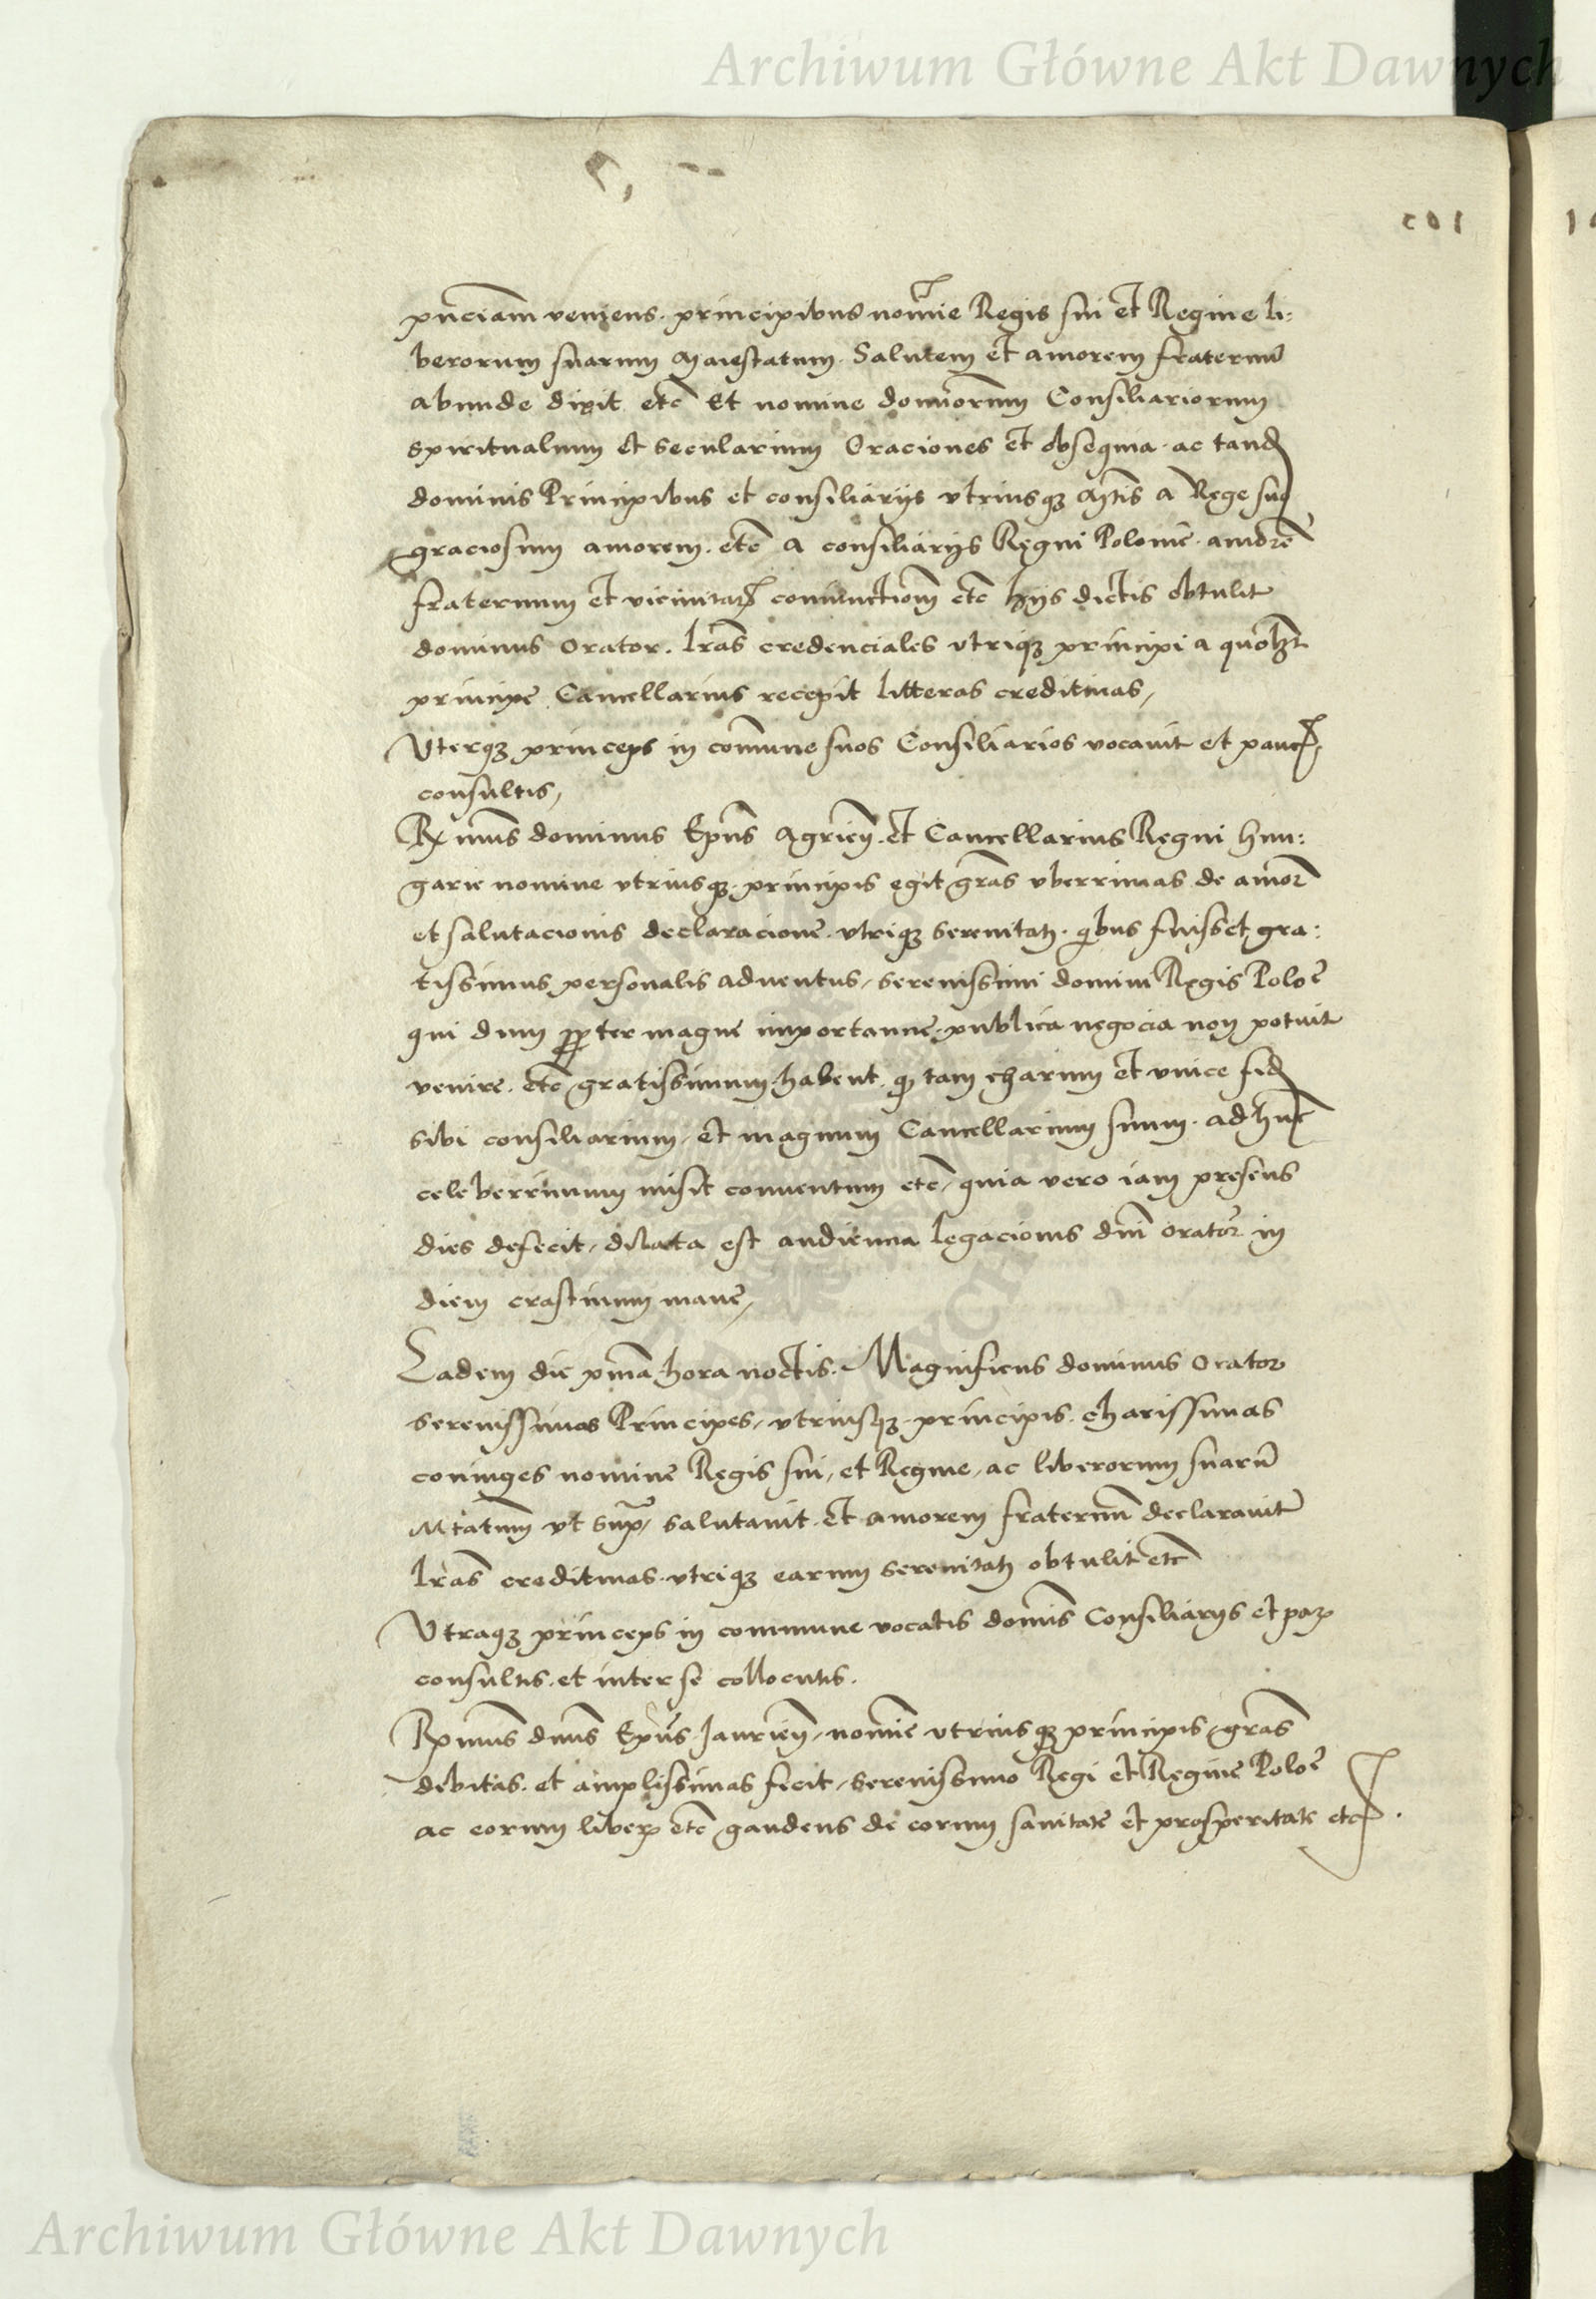 Archiwum Główne Akt Dawnych
pnciam veniens. principibus nomine Regis sui et Regine li:
berorum suarum Maiestatum. Salutem et amorem fraternu
abunde dixit etc Et nomine dominorum Consiliariorum
spiritualium et secularium Oraciones et obsequia. ac tand
dominis Principibus et consiliarijs vtriusq Mtis a Rege suo
graciosum amorem. etc a consiliarijs Regni Polonie. amore
fraternum et vicinitatis coniunctiom etc hijs dictis obtulit
dominus Orator. lras credenciales vtriq principi a quolzt
principe Cancellarius recepit litteras creditiuas,
Vterq princeps in comune suos Consiliarios vocauit et pauc
consultis,
Rmus dominus Epus Agrien. et Cancellarius Regni Hun:
garie nomine vtriusq. principis egit gras vberrimas de amor
et salutacionis declaracione. vtriq serenitati. qbus fuisset gra:
tissimus personalis aduentus, serenissimi domini Regis Poloe
qui dum propter magne importancie. publica negocia non potuit
venire. etc gratissimum habent. q tam charum et vnice fid
sibi consiliarium, et magnum Cancellarium suum. ad hunc
celeberrimum misit conuentum etc, quia vero iam presens
dies defecit, dilata est audiencia legacionis dni orator in
diem crastinum mane,
Eadem die pma hora noctis. Magnificus dominus Orator
serenissimas Principes, vtriusq. principis. charissimas
coniuges nomine Regis sui, et Regine, ac liberorum suaru
Mtatum vt supra, salutauit. et amorem fraternum declarauit
lras creditiuas. vtriq earum serenitati obtulit etc
Vtraq princeps in commune vocatis domis Consiliarijs et par
consultis. et inter se collocutis.
Rmus dnus Epus Jaurien, nomine vtriusq principis gras
debitas. et amplissimas fecit, serenissimo Regi et Regine Poloe
ac eorum liber etc gaudens de eorum sanitate et prosperitate etc.
Archiwum Główne Akt Dawnych